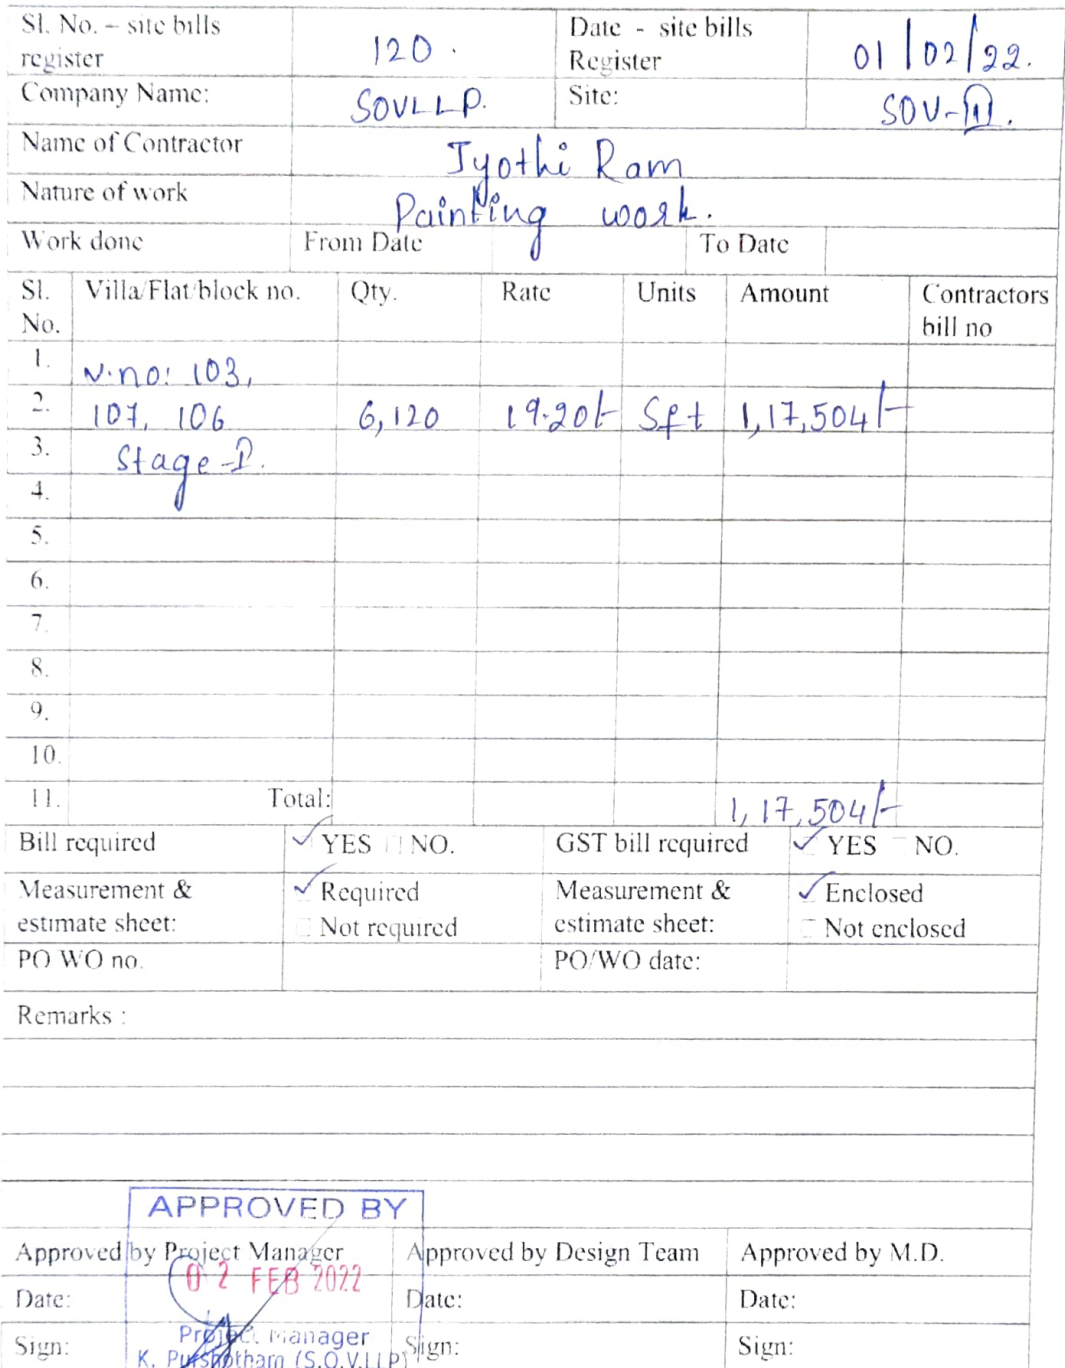 Sl. No. – site bills register 120. Date - site bills Register 01/02/22.
Company Name: SOVLLP. Site: SOV-III.
Name of Contractor Jyothi Ram
Nature of work Painting work.
Work done From Date To Date
Sl. No. Villa/Flat/block no. Qty. Rate Units Amount Contractors bill no
1. V.no: 103,
2. 107, 106 6,120 19.20/- Sft 1,17,504/-
3. Stage-I.
4.
5.
6.
7.
8.
9.
10.
11. Total: 1,17,504/-
Bill required ✓ YES NO. GST bill required ✓ YES NO.
Measurement & estimate sheet: ✓ Required Not required Measurement & estimate sheet: ✓ Enclosed Not enclosed
PO WO no. PO/WO date:
Remarks :
APPROVED BY
Approved by Project Manager Approved by Design Team Approved by M.D.
02 FEB 2022
Date: Date: Date:
Project Manager
Sign: Sign: Sign:
K. Purshotham (S.O.V.LLP)